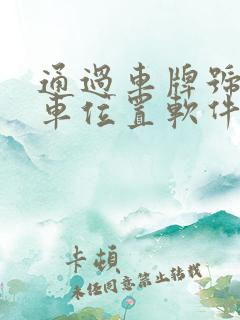 通過車牌號
車位置軟件
卡頓
未經同意禁止轉載